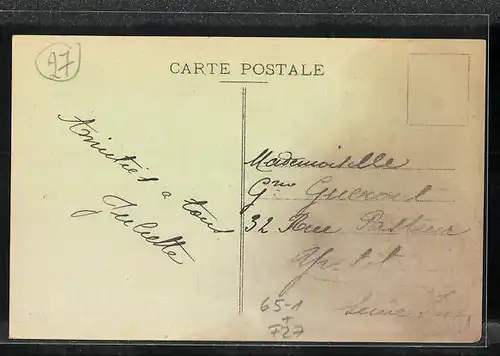 27
CARTE POSTALE
Amitiés a tous
Juliette
Mademoiselle
Gueroult
32 Rue Pasteur
Yvetot
Seine Inf
65-1
+
727